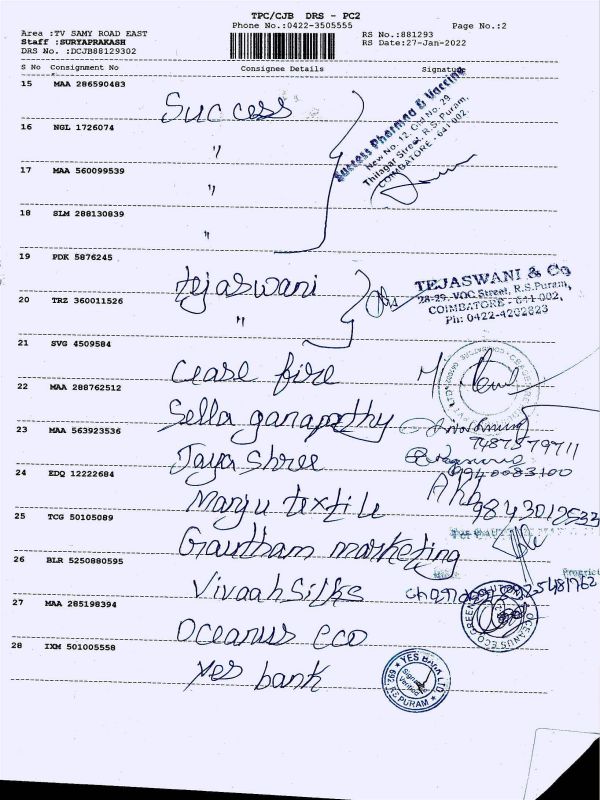 TPC/CJB DRS - PC2
Phone No.:0422-3505555
Page No.:2
Area :TV SAMY ROAD EAST
RS No.:881293
Staff :SURYAPRAKASH
RS Date:27-Jan-2022
DRS No. :DCJB88129302
S No Consignment No Consignee Details Signature
15 MAA 286590483
Success
Success Pharmad & Vaccine
New No. 12, Old No. 29
Thilagar Street, R.S. Puram,
COIMBATORE - 641 002.
16 NGL 1726074
"
17 MAA 560099539
"
18 SLM 288130839
"
19 PDK 5876245
Tejaswani
TEJASWANI & Co
28-29, VOC Street, R.S.Puram,
COIMBATORE - 641 002,
Ph: 0422-4202823
20 TRZ 360011526
"
21 SVG 4509584
Cease fire
22 MAA 288762512
Sella ganapathy
23 MAA 563923536
7487579711
Jaya Shree
9940083100
24 EDQ 12222684
Manju textile
25 TCG 50105089
Gautham marketing
26 BLR 5250880595
Vivaah Silks
27 MAA 285198394
Oceanus eco
OCEANUS ECO GREEN
28 IXM 501005558
Yes bank
YES BANK LTD
Signature
Verified
RS PURAM